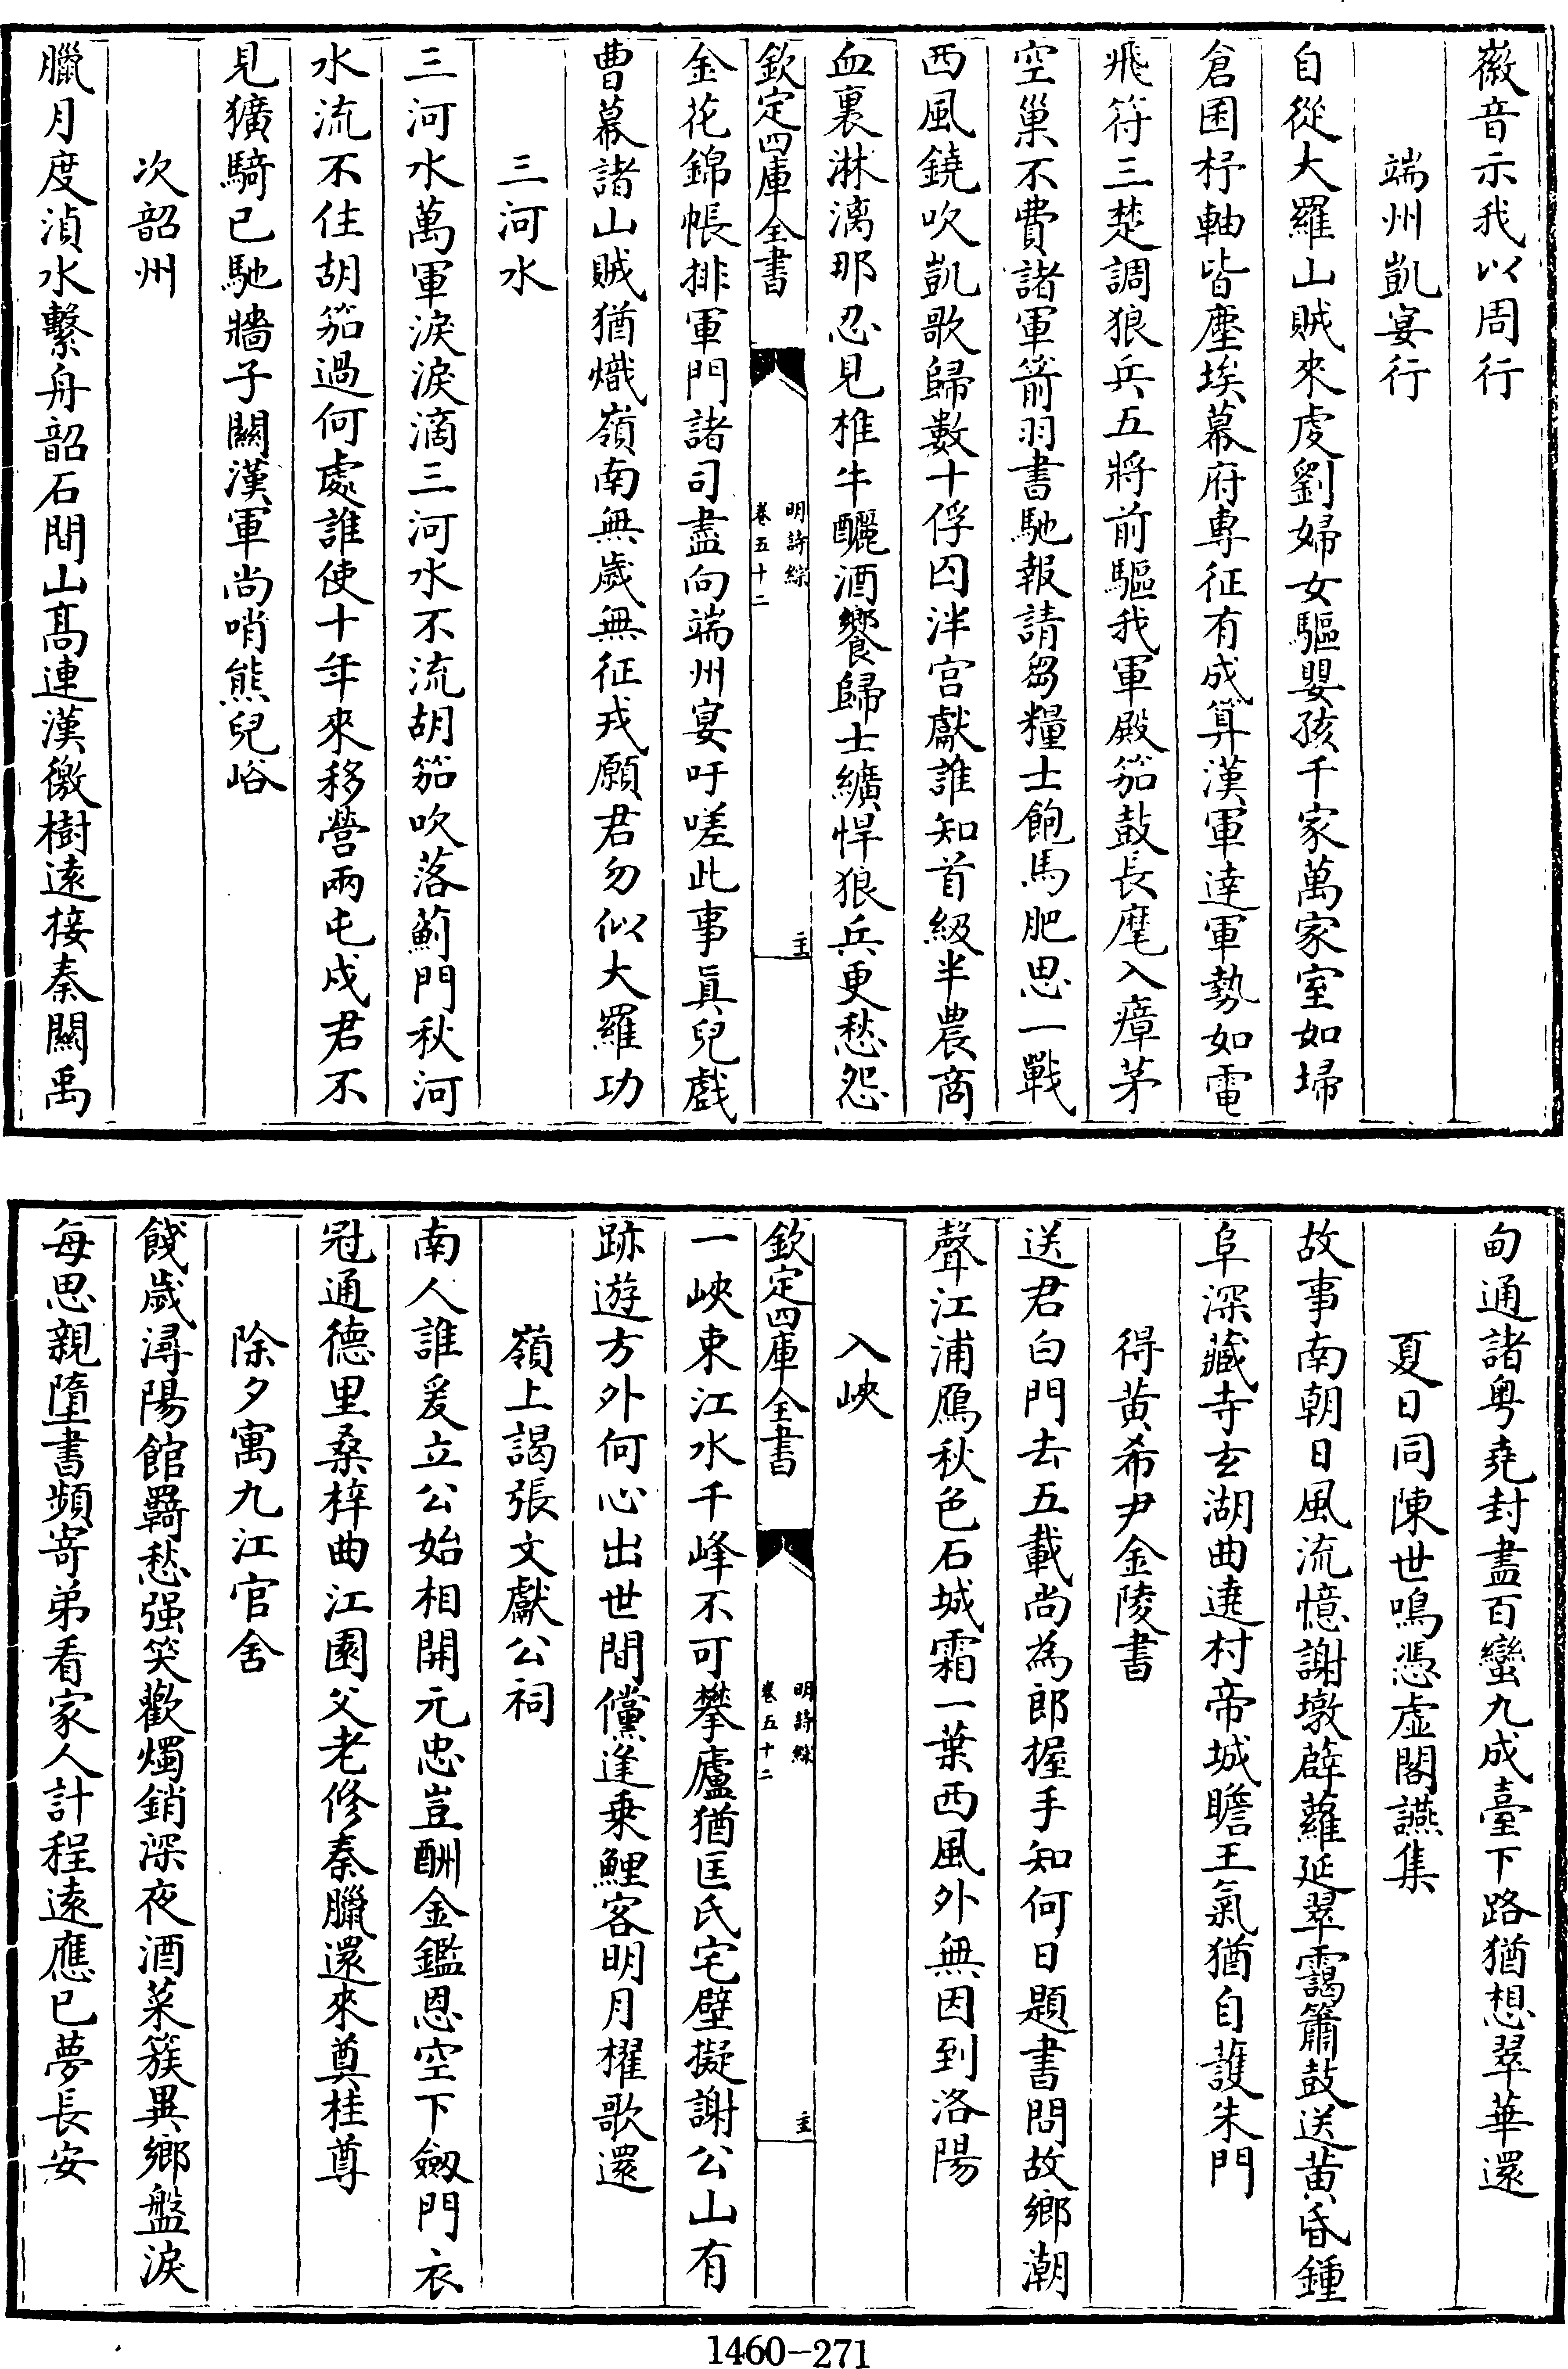 徽音示我以周行
端州凱宴行
自從大羅山賊來虔劉婦女驅嬰孩千家萬家室如埽
倉囷杼軸皆塵埃幕府專征有成算漢軍達軍勢如電
飛符三楚調狼兵五將前驅我軍殿笳鼓長麾入瘴茅
空巢不費諸軍箭羽書馳報請芻糧士飽馬肥思一戰
西風鐃吹凱歌歸數十俘囚泮宫獻誰知首級半農商
血裏淋漓那忍見椎牛釃酒饗歸士纊悍狼兵更愁怨
欽定四庫全書
明詩綜
卷五十二
金花錦帳排軍門諸司盡向端州宴吁嗟此事眞兒戲
曹幕諸山賊猶熾嶺南無歲無征戎願君勿似大羅功
三河水
三河水萬軍淚淚滴三河水不流胡笳吹落薊門秋河
水流不住胡笳過何處誰使十年來移營兩屯戍君不
見獷騎已馳牆子關漢軍尚哨熊兒峪
次韶州
臘月度湞水繫舟韶石間山髙連漢徼樹遠接秦關禹
甸通諸粤堯封盡百蠻九成臺下路猶想翠華還
夏日同陳世鳴憑虚閣讌集
故事南朝日風流憶謝墩薜蘿延翠靄簫鼓送黄昏鍾
阜深藏寺玄湖曲遶村帝城瞻王氣猶自護朱門
得黄希尹金陵書
送君白門去五載尚為郎握手知何日題書問故鄉潮
聲江浦鴈秋色石城霜一葉西風外無因到洛陽
入峽
欽定四庫全書
明詩綜
卷五十二
一峽束江水千峰不可攀廬猶匡氏宅壁擬謝公山有
跡遊方外何心出世間儻逢乗鯉客明月櫂歌還
嶺上謁張文獻公祠
南人誰爰立公始相開元忠豈酬金鑑恩空下劒門衣
冠通德里桑梓曲江園父老修秦臘還來奠桂尊
除夕寓九江官舍
餞歲潯陽館羇愁强笑歡燭銷深夜酒菜簇異鄉盤淚
每思親墮書頻寄弟看家人計程遠應已夢長安
1460-271